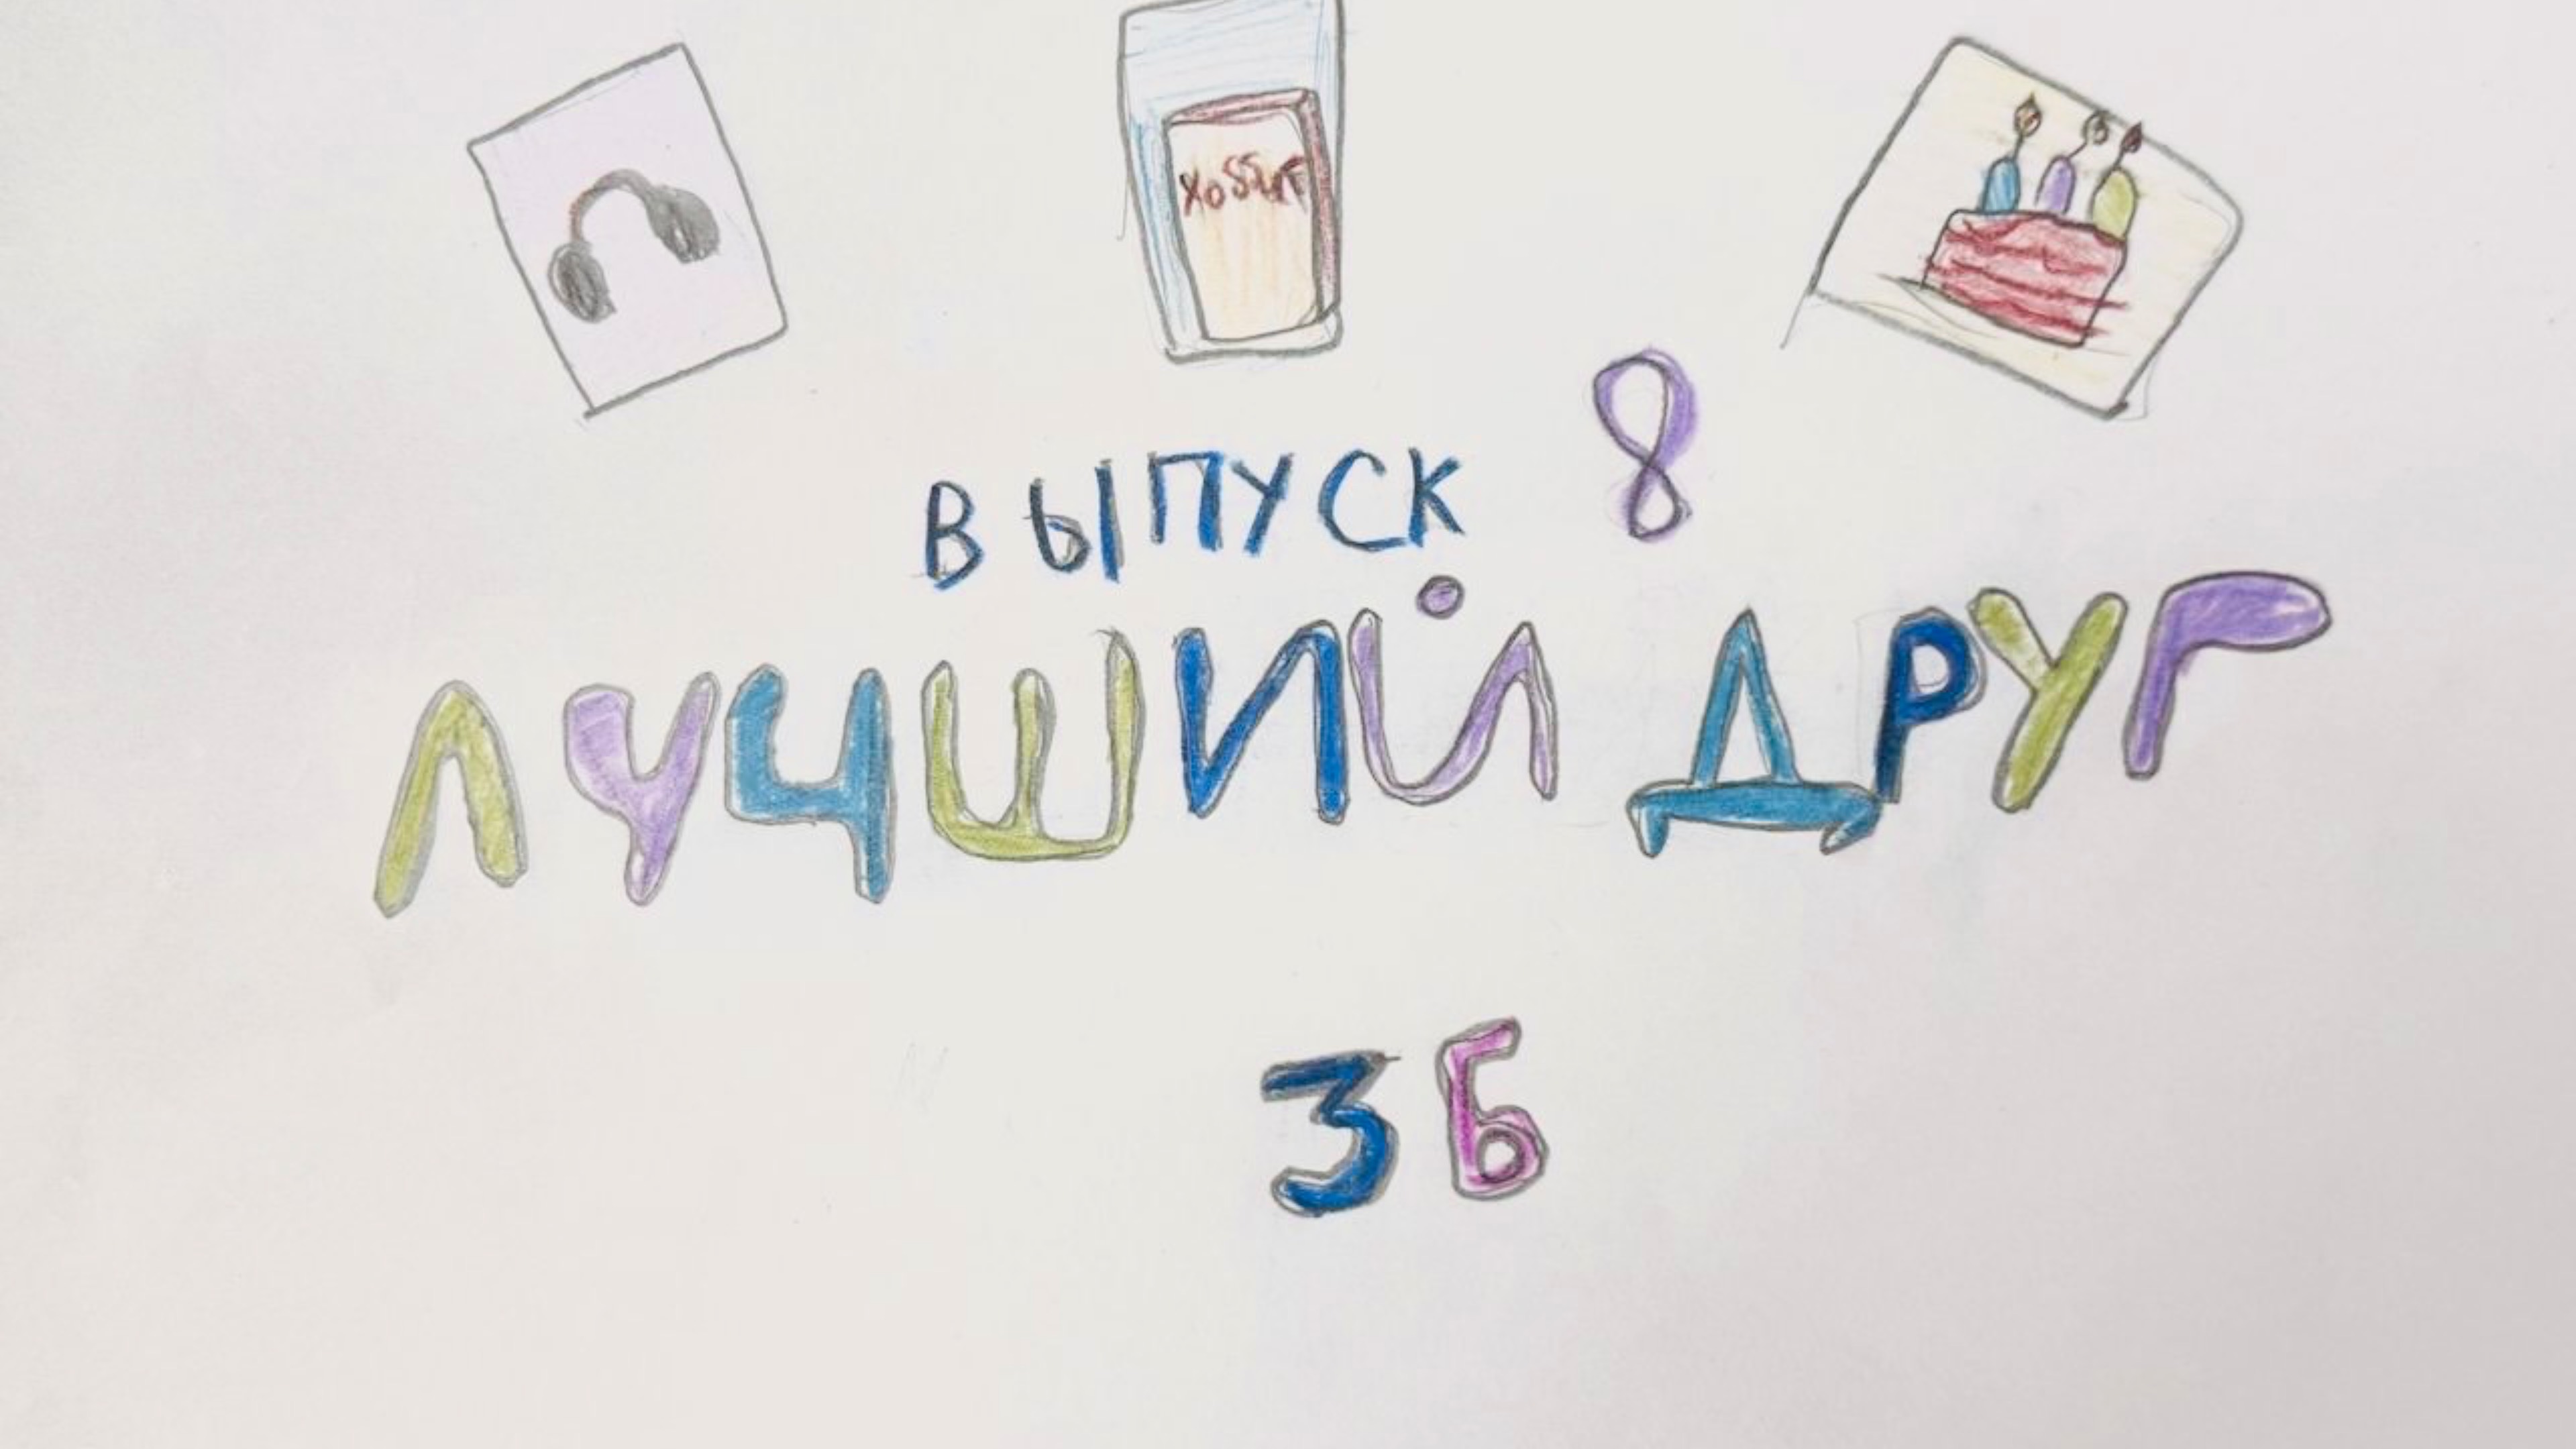 ХОББИТ
ВЫПУСК 8
ЛУЧШИЙ ДРУГ
3Б